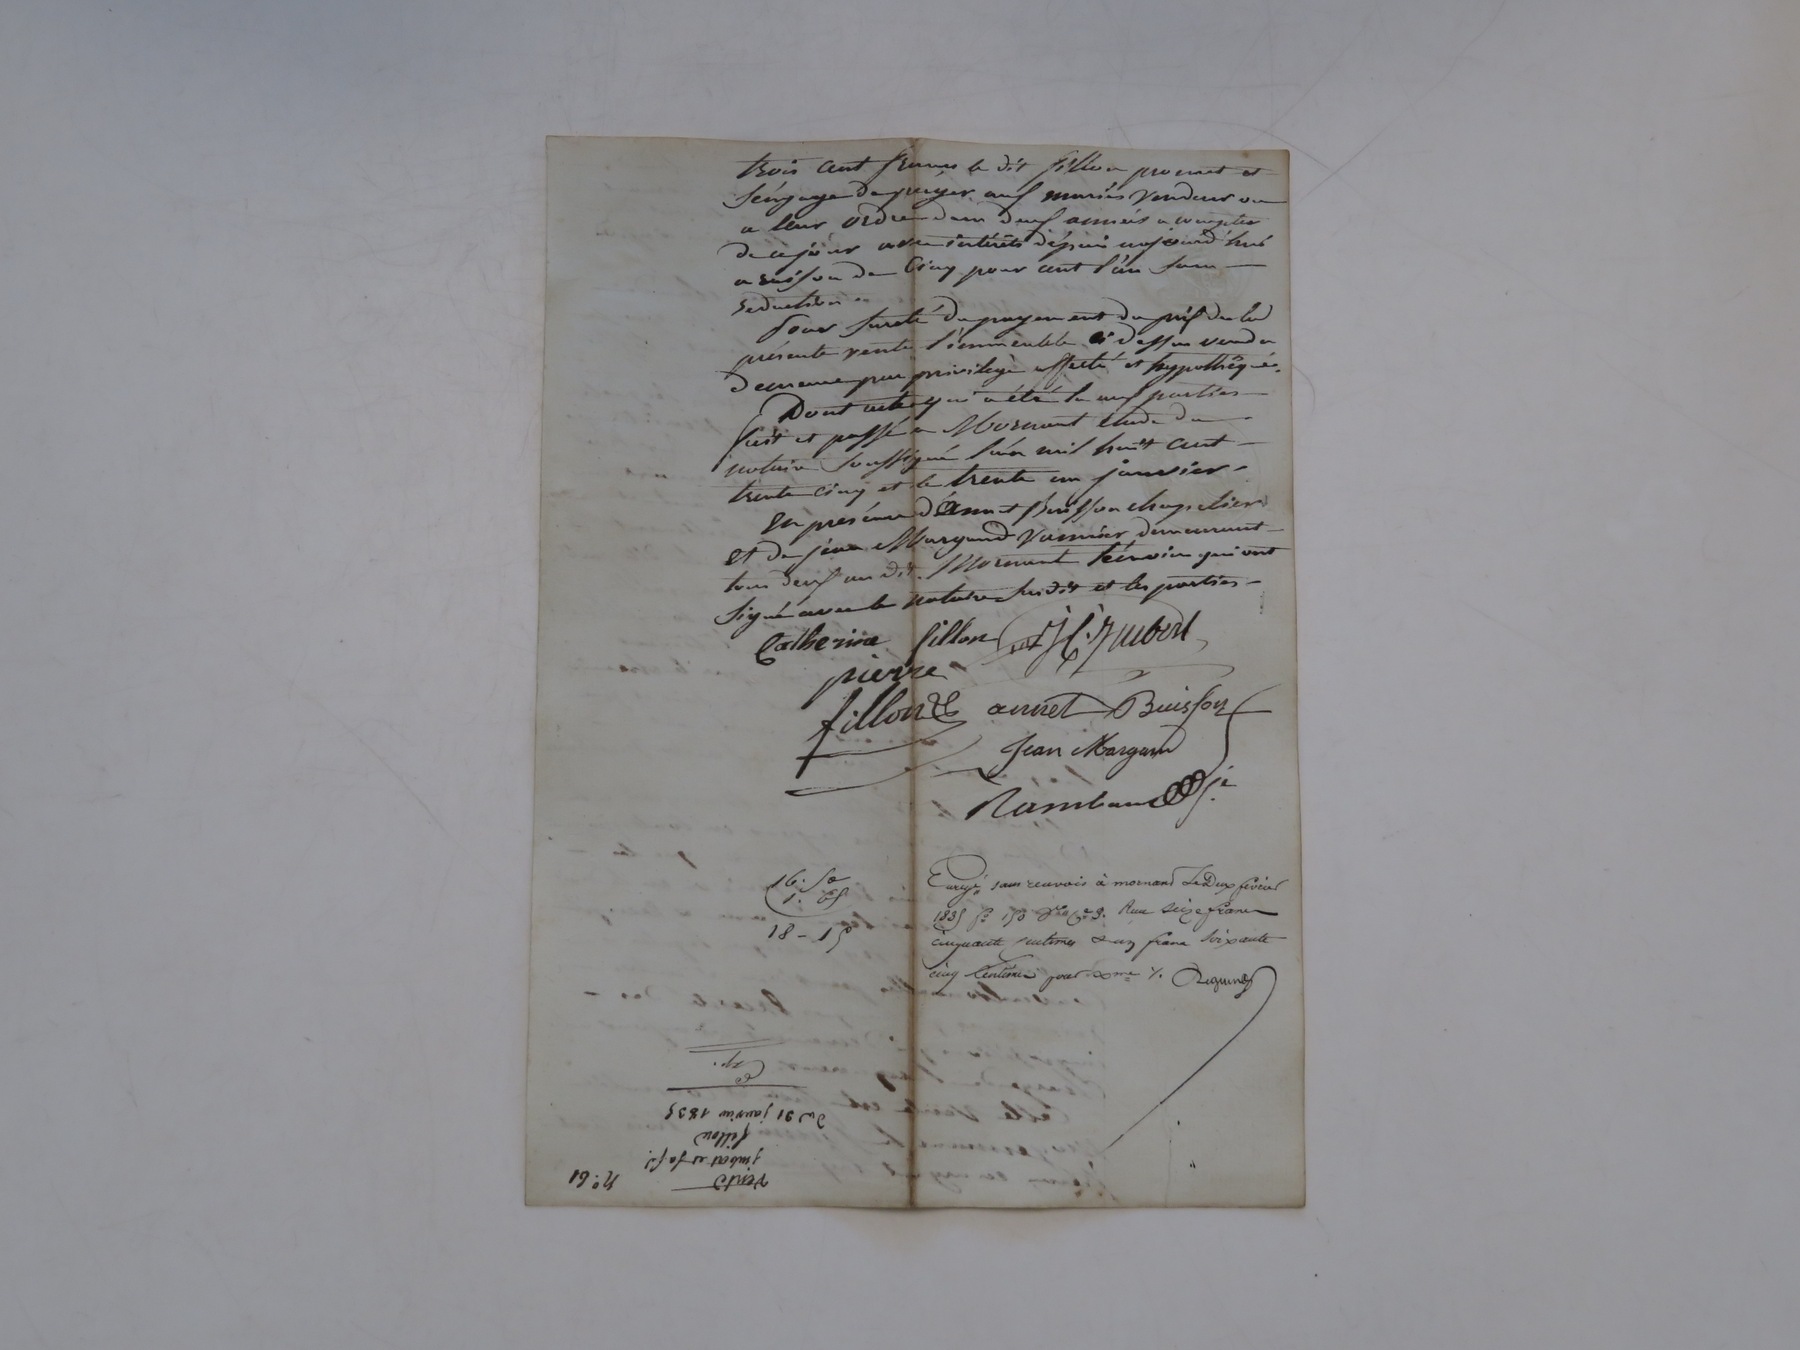 trois cent francs le dit fillon promet et
s'engage de payer aux mariés vendeur ou
a leur ordre dans deux années a compter
de ce jour avec intérêts depuis aujourd'hui
a raison de Cinq pour cent l'an sans
reduction
Pour sureté du payement du prix de la
présente vente l'immeuble ci dessus vendu
demeure par privilege affecté et hypothéqué.
Dont acte qui a été lu aux parties
fait et passé a Mornant etude du
notaire soussigné l'an mil huit cent
trente cinq et le trente un janvier.
En présence d'annet Buisson chapelier
et de jean Margand vannier demeurant
tous deux au dit Mornant témoins qui ont
signé avec le notaire susdit et les parties
Catherine fillon J C. Jubert
pierre
fillon annet Buisson
Jean Margand
Rambaud
16. 50
1. 65
18 - 15
Enregé sans renvois à mornand Le Deux février
1835 fo 153 Vo Ce 3. Reçu seize francs
cinquante centimes & un franc soixante
cinq Centimes pour dxme %.
Du 31 janvier 1835
fillon
jubert et sa fe.
vente
No. 61